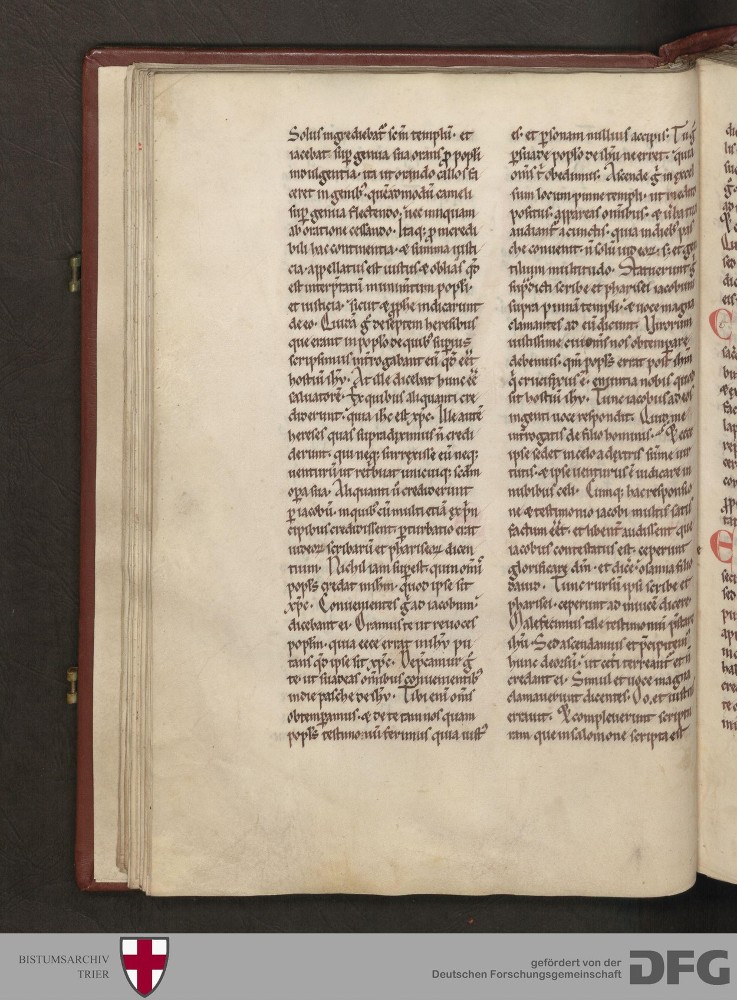 Solus ingrediebat᷑ scm̄ templū. et
iacebat suꝑ genua sua orans ꝓ popl̃i
indulgentia. ita ut orando callos fa
ceret in genib;. quēadmodū cameli
suꝑ genua flectendo. nec unquam
ab oratione cessando. Itaq; ꝓ incredi
bili hac continentia. ⁊ summa iusti
cia. appellatus est iustus. ⁊ oblias qd̄
est int̄pretatū munimentum popl̃i.
et iusticia. sicut ⁊ ꝓph̄e indicarunt
de eo. Quidā g̊ de septem heresibus
que erant in popl̃o de quib; supius
scripsimus int̄rogabant eū qd̄ eēt
hostiū ih̄u. At ille dicebat hunc eē
saluatorē. Ex quibus aliquanti cre
diderunt. quia ih̄c est xp̄c. Ille autē
hereses quas supradiximus n̄ credi
derunt. qui neq; surrexisse eū neq;
uenturū ut reddat unicuiq; scdm̄
oꝑa sua. Aliquanti ū crediderunt
ꝑ iacobū. in quib; cū multi etiā ex p̄n
cipibus credidissent. ꝑturbatio erat
iudeoꝝ scribarū et phariseoꝝ dicen
tium. Nichil iam suꝑest. quin om̄is
popl̃s credat in ih̄m. quod ipse sit
xp̄c. Conuenientes g̊ ad iacobum.
dicebant ei. Oramus te ut reuoces
popl̃m. quia ecce errat in ih̄u pu
tans qd̄ ipse sit xp̄c. Dep̄camur g̊
te. ut suadeas om̄ibus conuenientib;
in die pasche de ih̄u. Tibi eni om̄s
obtemꝑamus. ⁊ de te tam nos quam
popl̃s testimoniū ferimus quia iust᷒
es. et ꝑsonam nullius accipis. Tu g̊
ꝑsuade popl̃o de ih̄u ne erret. quia
om̄s t̄ obedimus. Ascende g̊ in excel
sum locum pinne templi. ut in edito
positus. appareas om̄ibus. ⁊ ūba tua
audiant᷑ a cunctis. quia in dieb; pas
che conuenit. n̄ solū iudeoꝝ. s; et gen
tilium multitudo. Statuerunt g̊
sup̄dicti scribe et pharisei iacobum
supra pinnā templi. ⁊ uoce magna
clamantes ad eū dicunt. Uirorum
iustissime cui om̄s nos obtemꝑare
debemus. qm̄ popl̃s errat post ih̄m
q̇ crucifixus ē. enuntia nobis quod
sit hostiū ih̄u. Tunc iacobus ad eos
ingenti uoce respondit. Quid me
int̄rogatis de filio hominis. Et ecce
ipse sedet in celo a dextris sum̄e uir
tutis. ⁊ ipse uenturus ē iudicare in
nubibus celi. Cumq; hac responsio
ne ⁊ testimonio iacobi multis satis
factum eēt. et libent᷑ audissent que
iacobus contestatus est. ceperunt
glorificare dm̄. et dicē. osanna filio
dauid. Tunc rursū ipsi scribe et
pharisei. ceperunt ad inuicē dicere.
Malefecimus tale testimoniū p̄stare
ih̄u. Sed ascendamus et p̄cipitem᷒
hunc deorsū. ut cet̄i terreant᷑ et n̄
credant ei. Simul et uoce magna
clamauerunt dicentes. O o. et iustus
errauit. Et compleuerunt scriptu
ram que in salomone scripta est
BISTUMSARCHIV
TRIER
gefördert von der
Deutschen Forschungsgemeinschaft
DFG